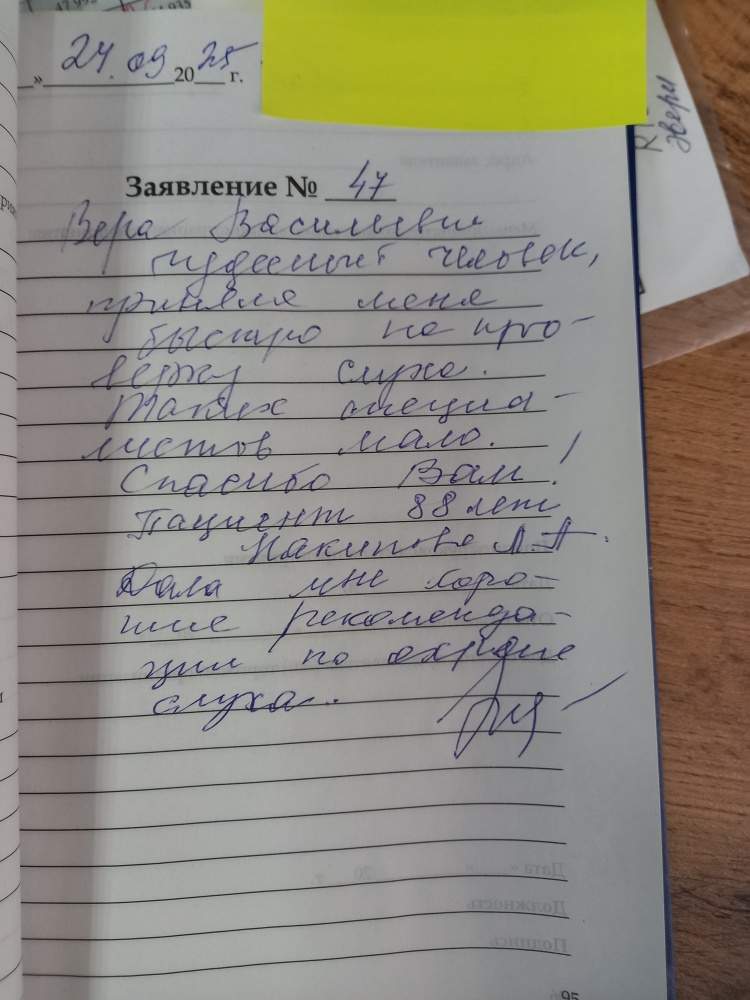 » 24.09 2025 г.
Заявление № 47
Вера Васильевна
чудесный человек,
приняла меня
быстро на про-
верку слуха.
Таких специа-
листов мало.
Спасибо Вам!
Пациент 88 лет
Накипова Л.П.
Дала мне хоро-
шие рекоменда-
ции по охране
слуха.
двери
Дата « » 20 г.
Должность
Подпись
95